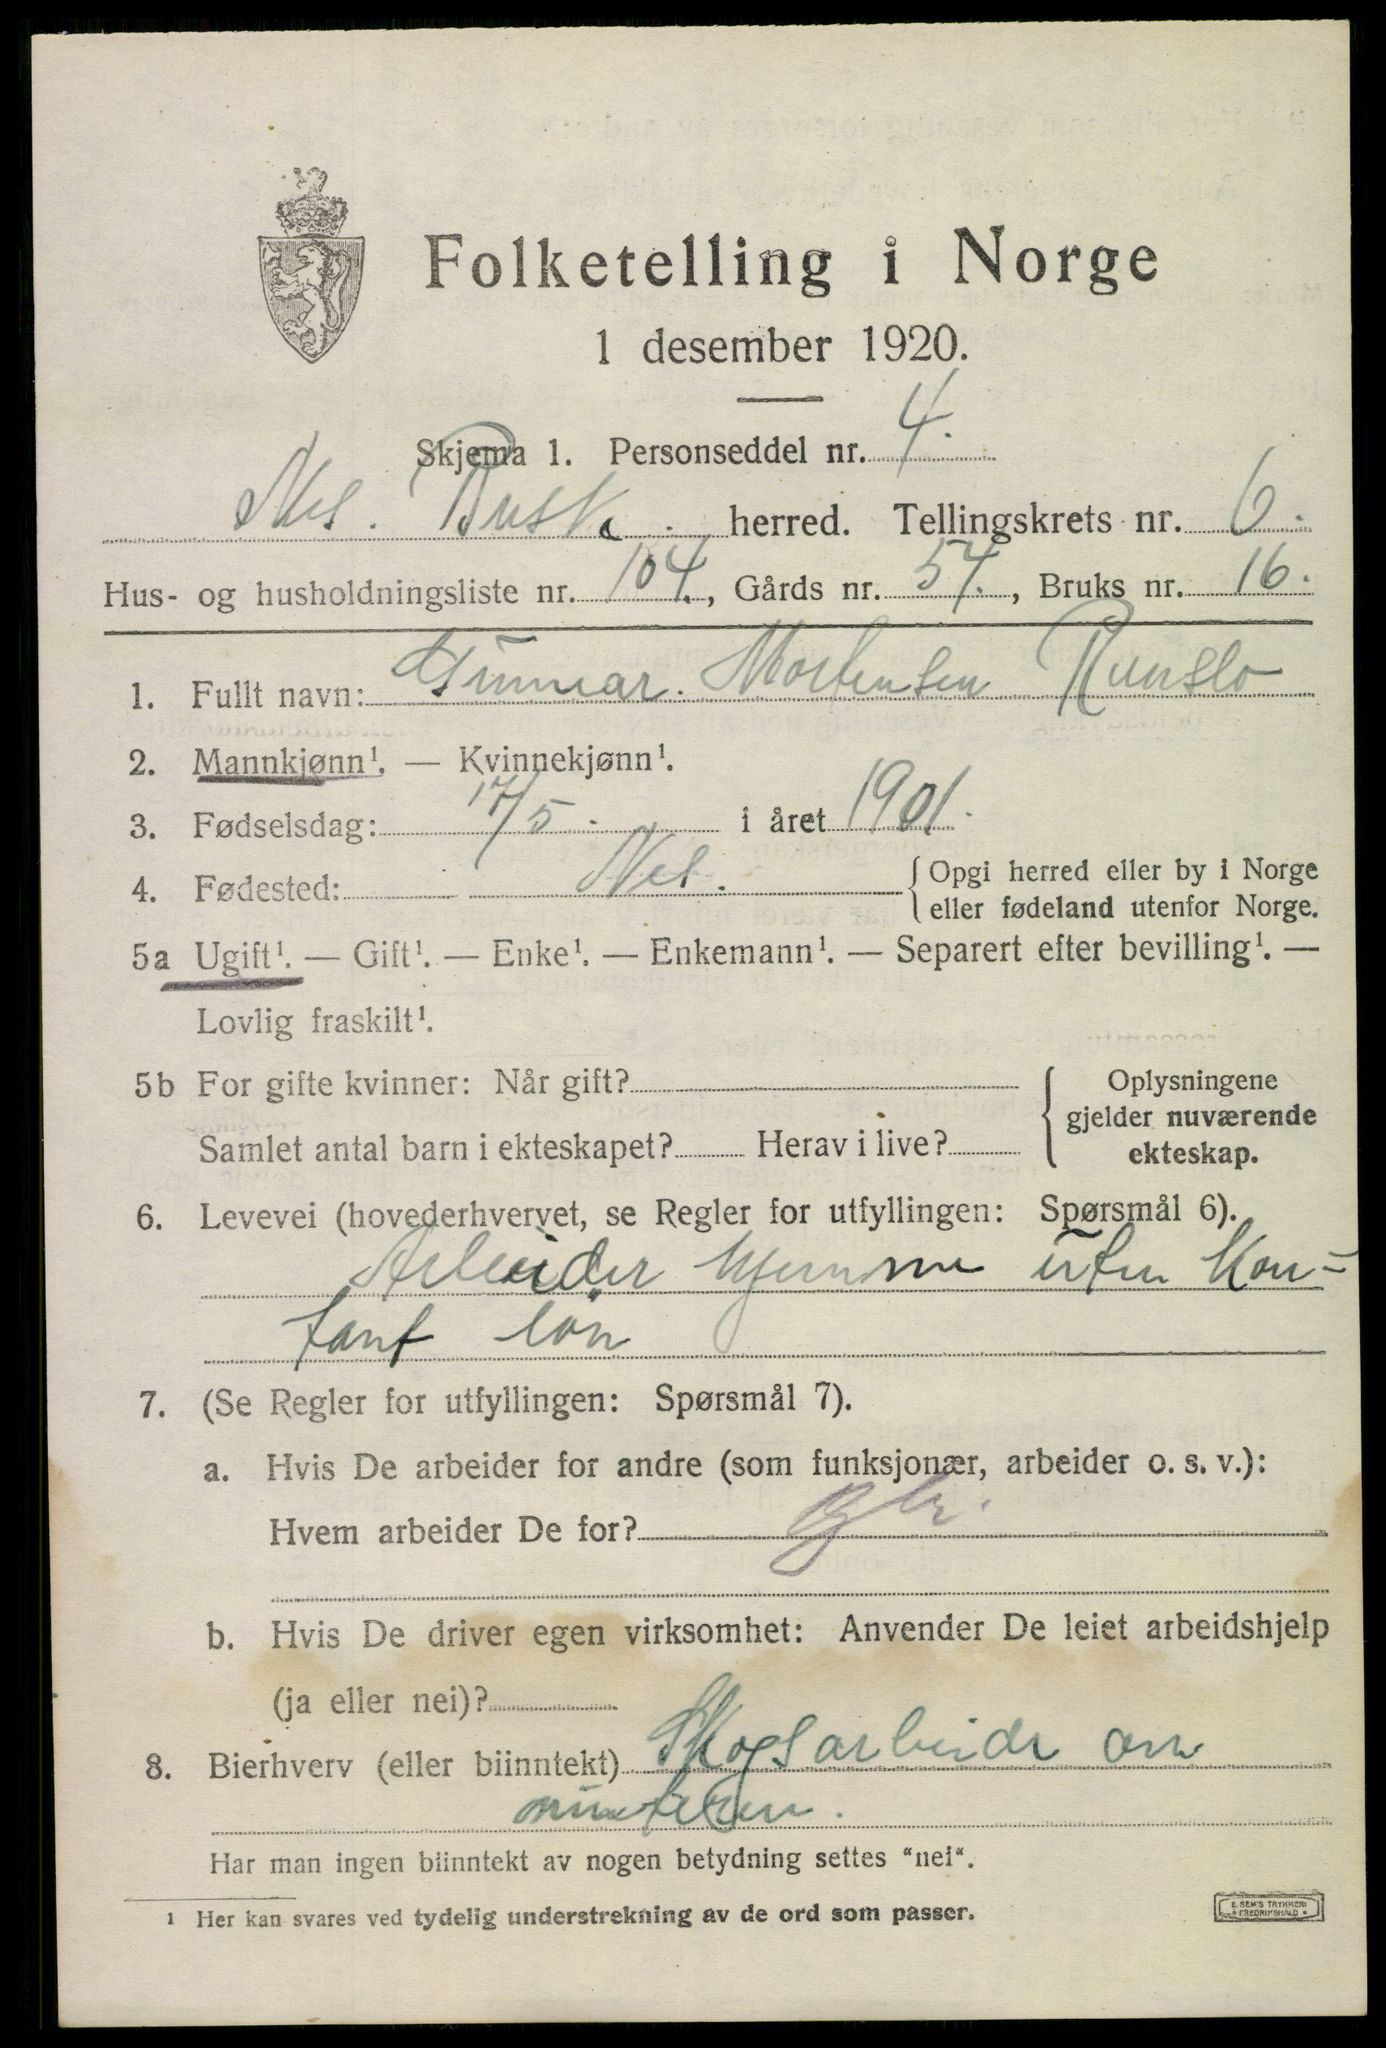 Folketelling i Norge
1 desember 1920.
Skjema 1. Personseddel nr. 4.
Nes. Busk. herred. Tellingskrets nr. 6.
Hus- og husholdningsliste nr. 104., Gårds nr. 54., Bruks nr. 16.
1. Fullt navn: Gunnar. Mortensen Runslo
2. Mannkjønn¹. — Kvinnekjønn¹.
3. Fødselsdag: 17/5. i året 1901.
4. Fødested: Nes. { Opgi herred eller by i Norge
eller fødeland utenfor Norge.
5a Ugift¹. — Gift¹. — Enke¹. — Enkemann¹. — Separert efter bevilling¹. —
Lovlig fraskilt¹.
5b For gifte kvinner: Når gift?
Samlet antal barn i ekteskapet? Herav i live?
Oplysningene
gjelder nuværende
ekteskap.
6. Levevei (hovederhvervet, se Regler for utfyllingen: Spørsmål 6).
Arbeider hjemme uten kon-
tant løn
7. (Se Regler for utfyllingen: Spørsmål 7).
a. Hvis De arbeider for andre (som funksjonær, arbeider o. s. v.):
Hvem arbeider De for?
b. Hvis De driver egen virksomhet: Anvender De leiet arbeidshjelp
(ja eller nei)?
8. Bierhverv (eller biinntekt) Skogsarbeide om
vinteren.
Har man ingen biinntekt av nogen betydning settes "nei".
¹ Her kan svares ved tydelig understrekning av de ord som passer.
E. SEM'S TRYKKERI
FREDRIKSHALD